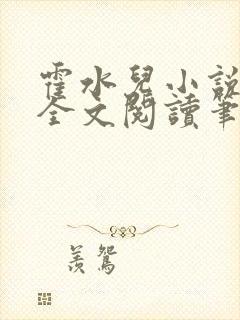 霍水兒小說
全文閱讀筆
羨鴛